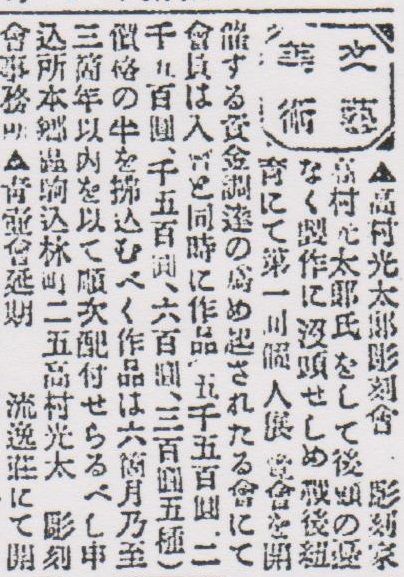 文藝
美術
▲高村光太郎彫刻會　彫刻家
高村光太郎氏をして後顧の憂
なく製作に沒頭せしめ戰後紐
育にて第一回個人展覽會を開
催する資金調達の爲め起されたる會にて
會員は入會と同時に作品(五千五百圓、二
千五百圓、千五百圓、六百圓、三百圓五種)
價格の半を拂込むべく作品は六箇月乃至
三箇年以內を以て順次配付せらるべし申
込所本鄕區駒込林町二五高村光太　彫刻
會事務所▲靑壺會延期　流逸莊にて開